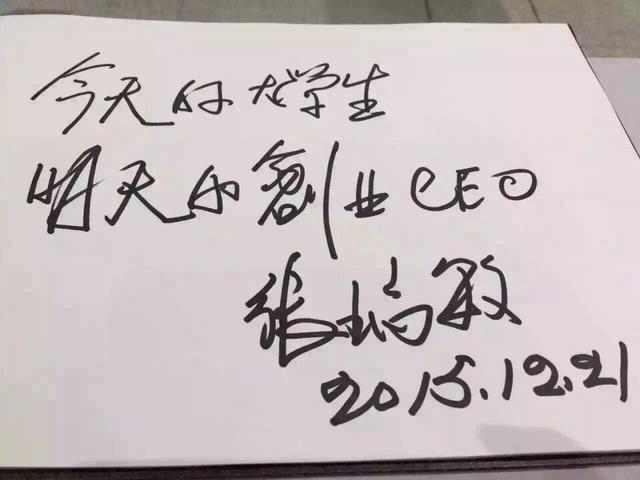 今天的大学生
明天的創业CEO
张瑞敏
2015.12.21